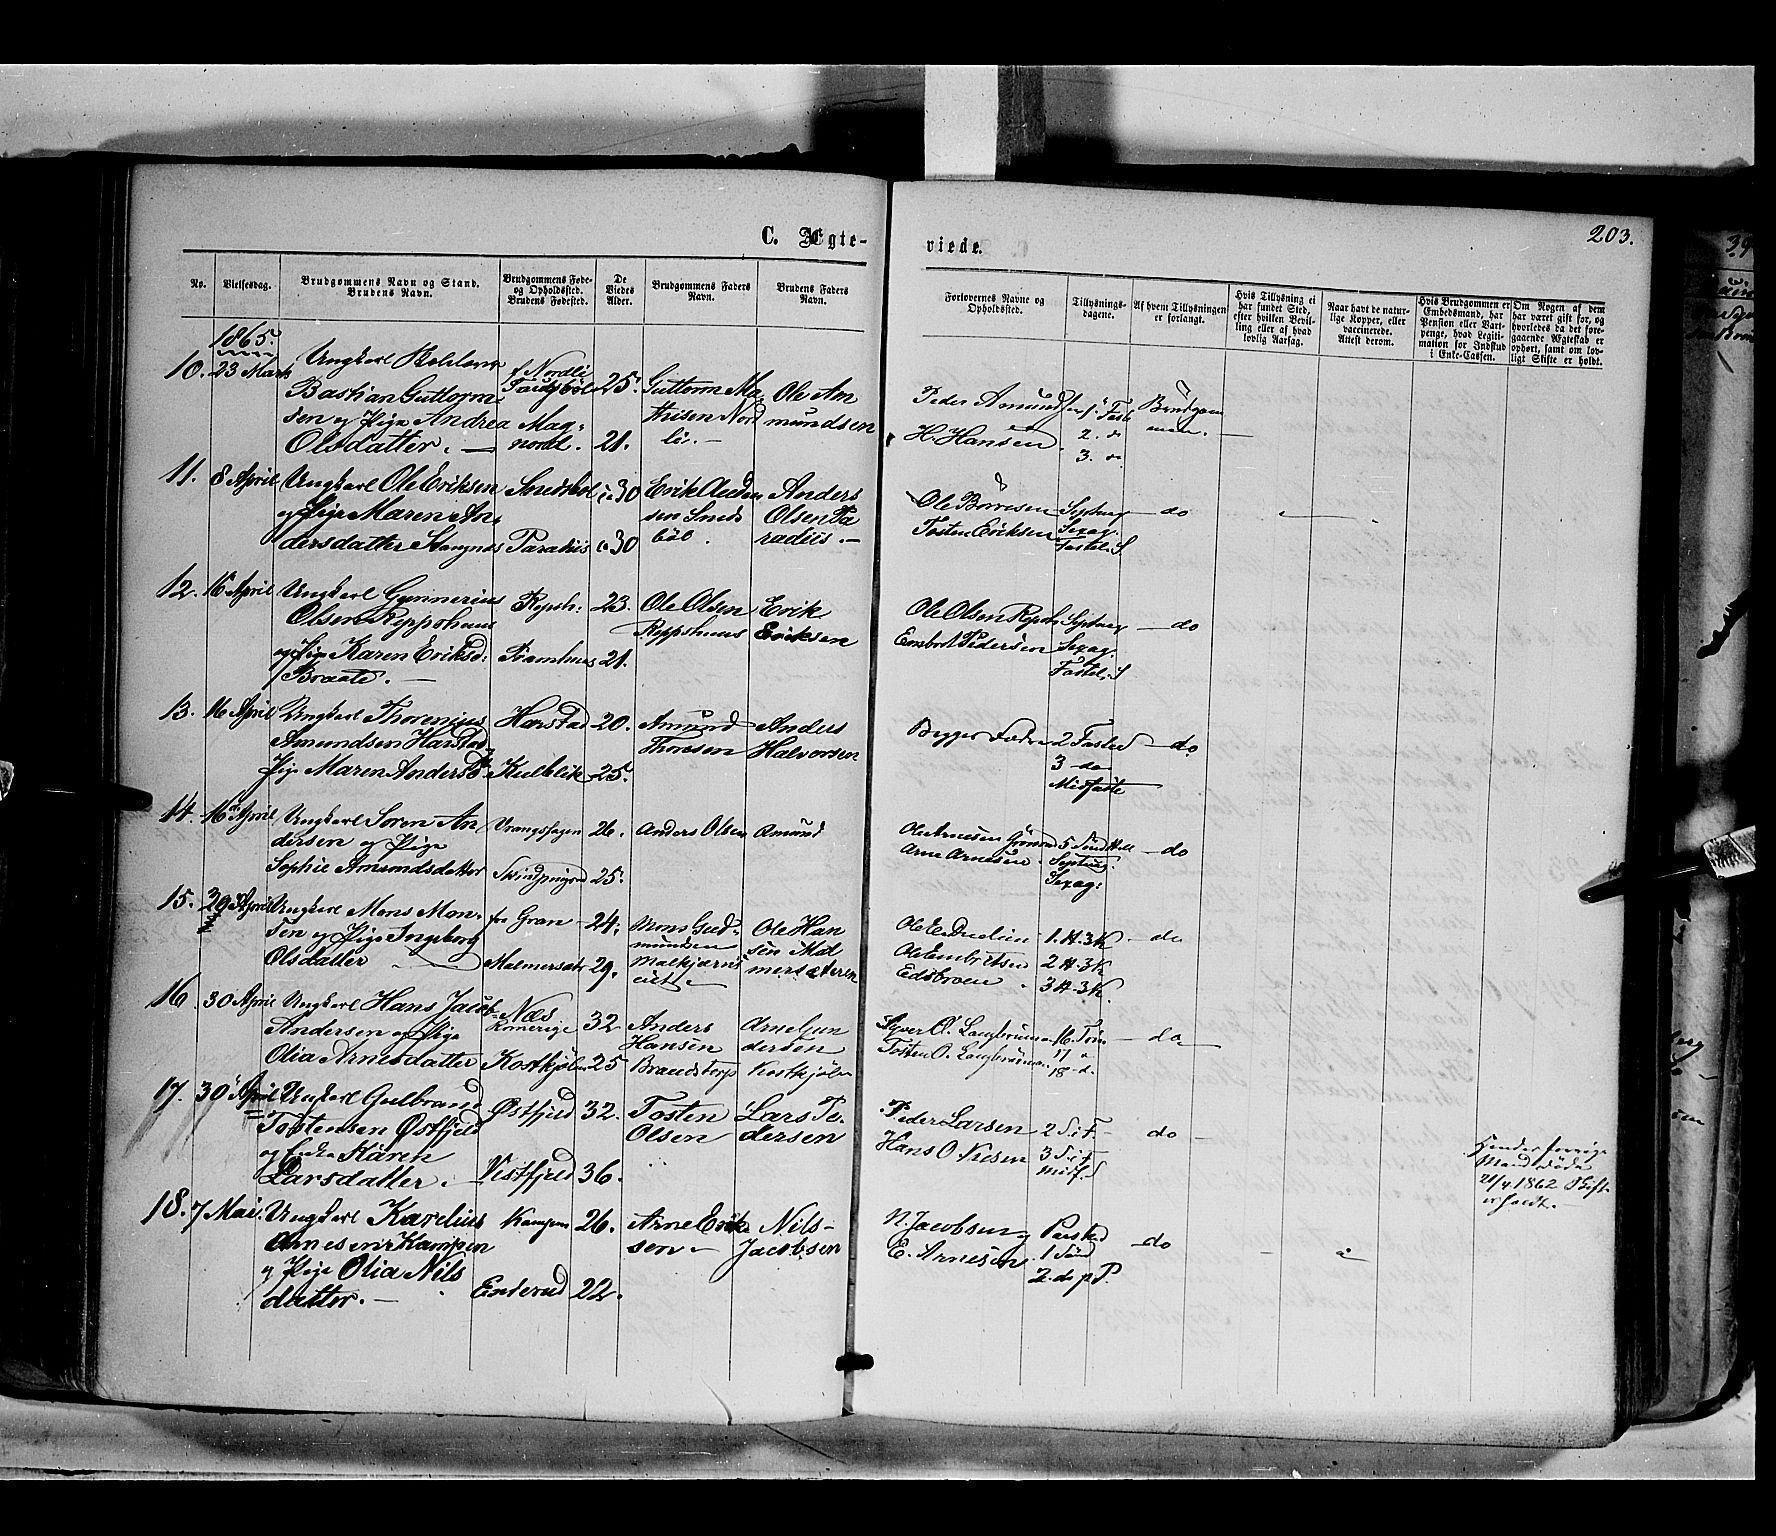 C. Ægte-
viede.
203.
No.
Vielsesdag.
Brudgommens Navn og Stand.
Brudens Navn.
Brudgommens Føde-
og Opholdssted.
Brudens Fødested.
De
Viedes
Alder.
Brudgommens Faders
Navn.
Brudens Faders
Navn.
Forlovernes Navne og
Opholdssted.
Tillysnings-
dagene.
Af hvem Tillysningen
er forlangt.
Hvis Tillysning ei
har fundet Sted,
efter hvilken Bevil-
ling eller af hvad
lovlig Aarsag.
Naar havt de natur-
lige Kopper, eller
vaccinerede.
Attest derom.
Hvis Brudgommen er
Embedsmand, har
Pension eller Vart-
penge, hvad Legiti-
mation for Indskud
i Enke-Cassen.
Om Nogen af dem
har været gift før, og
hvorledes da det fore-
gaaende Ægteskab er
ophørt, samt om lov-
ligt Skifte er holdt.
1865.
10. 23 Marts Ungkarl
Bastian Guttorm-
sen og Pige Andrea
Olsdatter.
f. Nordli
Magnord.
25.
21.
Guttorm Ma-
thisen Nord
li.
Ole Am
mundsen
Peder Amundsen
H. Hansen
1. Fast
2. do
3. do
Brudgom
men.
11. 8 April Ungkarl Ole Eriksen
og Pige Maren An-
dersdatter
Paradiis
30
30
Erik
sen Sneds
böl.
Anders
Olsen Pa
radiis.
Ole Börresen
Tosten Eriksen
Septuag
Sexag.
Fastel. S
do
12. 16 April Ungkarl Gunnerius
Olsen Reppshuus
og Pige Karen Eriksd:
Braate.
Repsh:
23.
21.
Ole Olsen
Reppshuus
Erik
Eriksen
Ole Olsen Repsh
Embret Pedersen
Septuag
Sexag.
Fastel. S
do
13. 16 April Ungkarl Thorenius
Amundsen Harstad
Pige Maren Andersd
Harstad
Kulblik
20.
25.
Amund
Thoresen
Anders
Halvorsen
Begges Fædre
2 Fasted
3 do
Midfaste
do
14. 16 April Ungkarl Soren An
dersen og Pige
Sophie Amundsdatter
Vrangshagen
26.
25.
Anders Olsen
Amund
Ole Arnesen
Arne Arnesen
Septuag.
Sexag:
do
15. 29 April Ungkarl Mons Mon-
sen og Pige Ingeborg
Olsdatter
fra Gran
Malmersæt
24.
29.
Mons Gud-
mundsen
Ole Han
sen Mal
mersæteren
Ole Embretsen
1. H. 3 K
2 H. 3 K
3 H. 3 K.
do
16. 30 April Ungkarl Hans Jacob
Andersen og Pige
Olia Arnesdatter
Næs
Romerige
Kostkjølen
32
25
Anders
Hansen
Brandstorp
Arne Gun
dersen
Kostkjøln
16. Trin
17 "
18 d.
do
17. 30 April Ungkarl Gulbrand
Tostensen Østfjeld
og Enke Karen
Larsdatter.
Østfjeld
Vestfjeld
32.
36.
Tosten
Olsen
Lars Pe-
dersen
Peder Larsen
Hans O.
2 S. i F.
3 S. i F
Mitf. S
do
Hendes forrige
Mand døde
21/4 1862 Skift
er holdt.
18. 7 Mai. Ungkarl Karelius
Arnesen Kampen
og Pige Olia Nils
datter.
Kampen
Enderud
26.
22.
Arne Erik-
sen
Nils
Jacobsen
N. Jacobsen
E. Arnesen
1 Sønd
2 do p P.
do